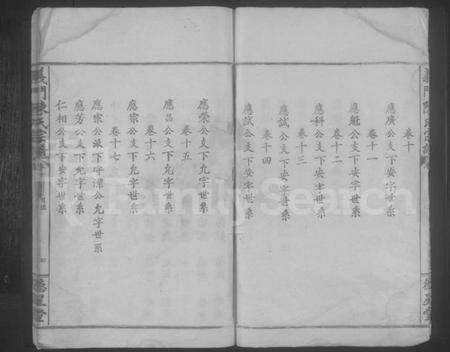 卷十
應廣公支下安字世系
卷十一
應魁公支下安字世系
卷十二
應科公支下安字世系
卷十三
應試公支下安字世系
卷十四
應試公支下安字世系
應榮公支下允字世系
卷十五
應昌公支下允字世系
卷十六
應宗公支下允字世系
卷十七
應宗公派下公允字世系
應芳公支下安字世系
仁相公支下安字世系
義門陳氏宗譜
德星堂
FamilySearch